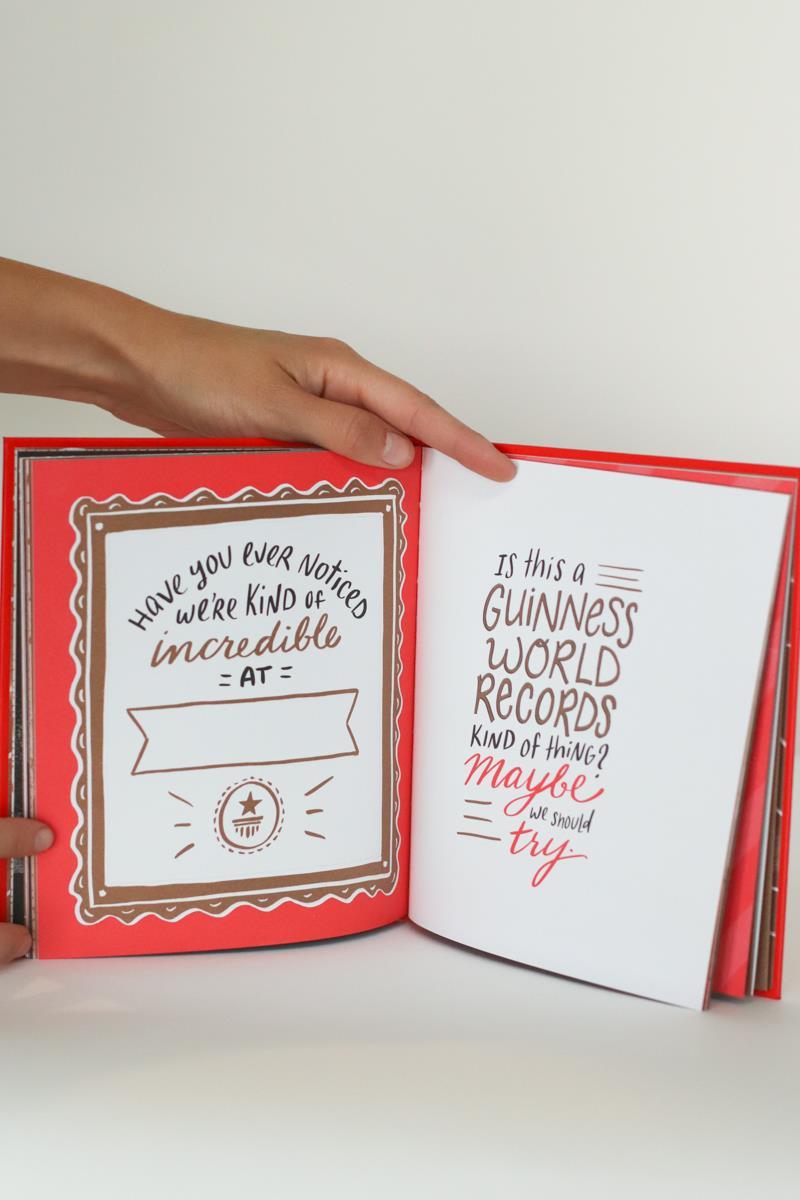 Have you ever noticed
we're kind of
incredible
= AT =
Is this a
Guinness
World
Records
kind of thing?
Maybe
we should
try.